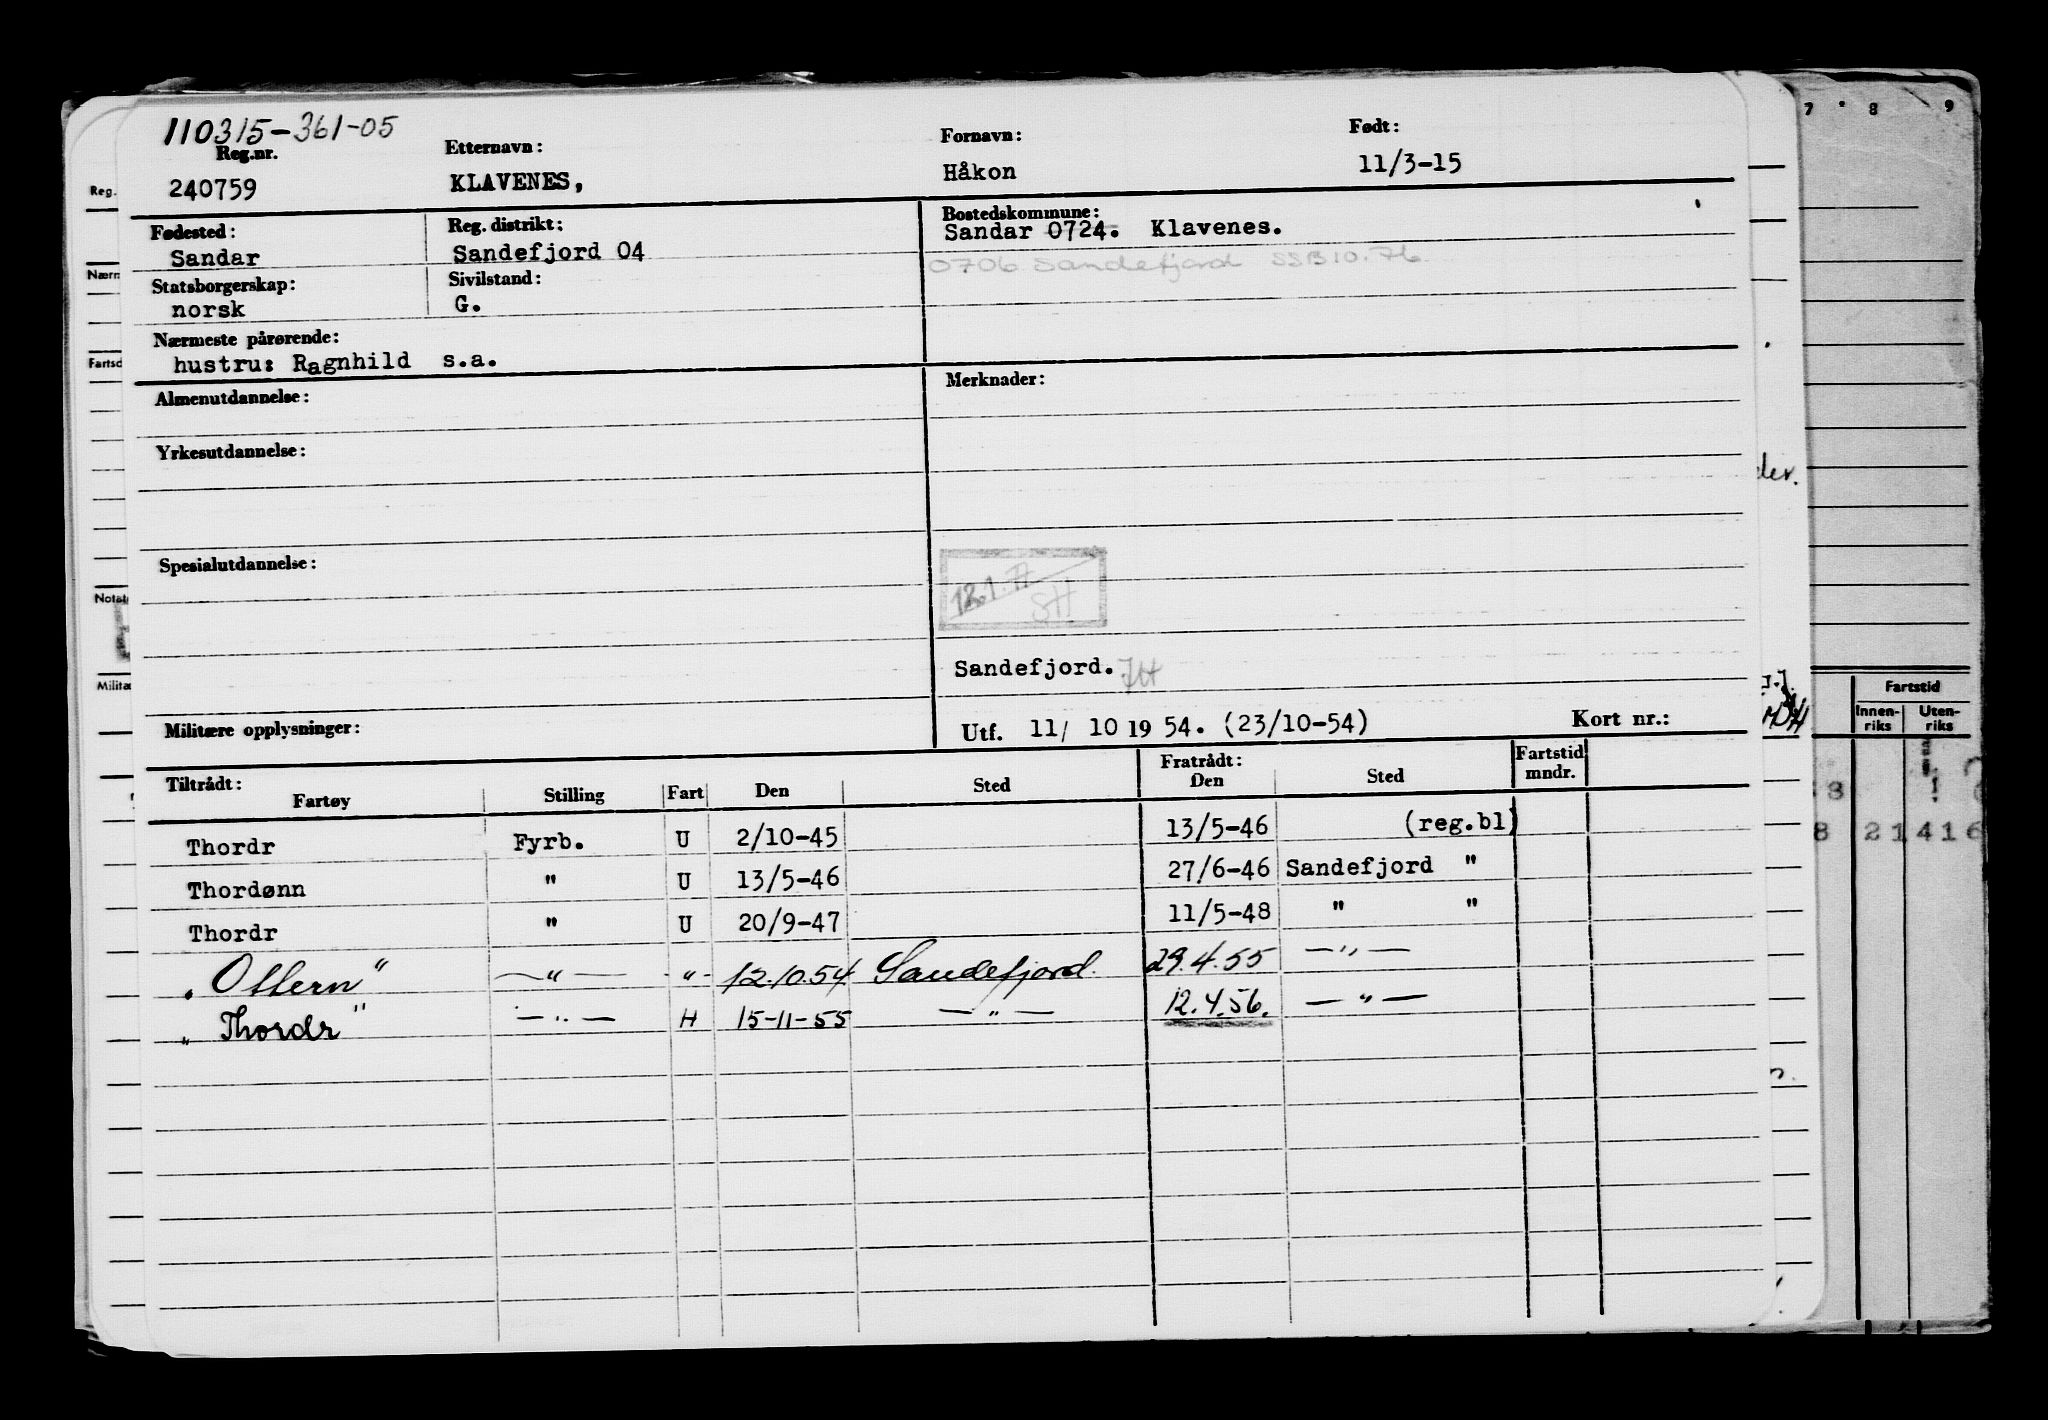 110315-361-05
Reg.nr. Etternavn: Fornavn: Født:
240759 KLAVENES, Håkon 11/3-15
Fødested: Reg. distrikt: Bostedskommune:
Sandar Sandefjord 04 Sandar 0724. Klavenes.
0706 Sandefjord SSB 10.76
Statsborgerskap: Sivilstand:
norsk G.
Nærmeste pårørende:
hustru: Ragnhild s.a.
Almenutdannelse: Merknader:
Yrkesutdannelse:
Spesialutdannelse:
18.1.77
SH
Sandefjord. JH
Militære opplysninger: Utf. 11/ 10 19 54. (23/10-54) Kort nr.:
Tiltrådt: Fratrådt: Fartstid
Fartøy Stilling Fart Den Sted Den Sted mndr.
Thordr Fyrb. U 2/10-45 13/5-46 (reg.bl)
Thordønn " U 13/5-46 27/6-46 Sandefjord "
Thordr " U 20/9-47 11/5-48 " "
„Ottern" —"— -"- 12.10.54 Sandefjord. 29.4.55 —"—
„Thordr" —"— H 15-11-55 —"— 12.4.56. —"—
Reg.
Nærm
Fartsd
Notat
Militæ
7 8 9
der.
Fartstid
Innen-
riks
Uten-
riks
8 21416